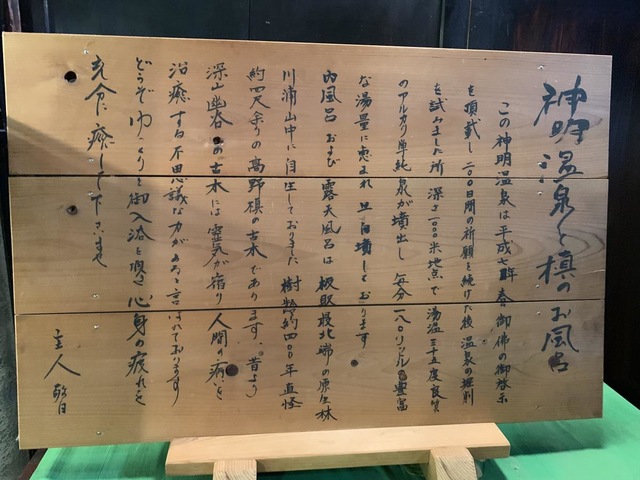 神明温泉と槙のお風呂
この神明温泉は平成七年春御佛の御啓示
を頂戴し二〇〇日間の祈願を続けた後温泉の掘削
を試みました所 深さ一〇〇米地点で湯温三十五度良質
のアルカリ単純泉が墳出し 毎分一八〇リットルの豊富
な湯量に恵まれ 自墳しております
内風呂および露天風呂は 板取最北端の原生林
川浦山中に自生しておりました 樹齢約四〇〇年直径
約四尺余りの高野槙の古木であります、昔より
深山幽谷の古木には霊気が宿り 人間の病いを
治癒する不思議な力があると言われております
どうぞゆっくりと御入浴を頂き 心身の疲れを
充分に癒して下さいませ
主人 敬白